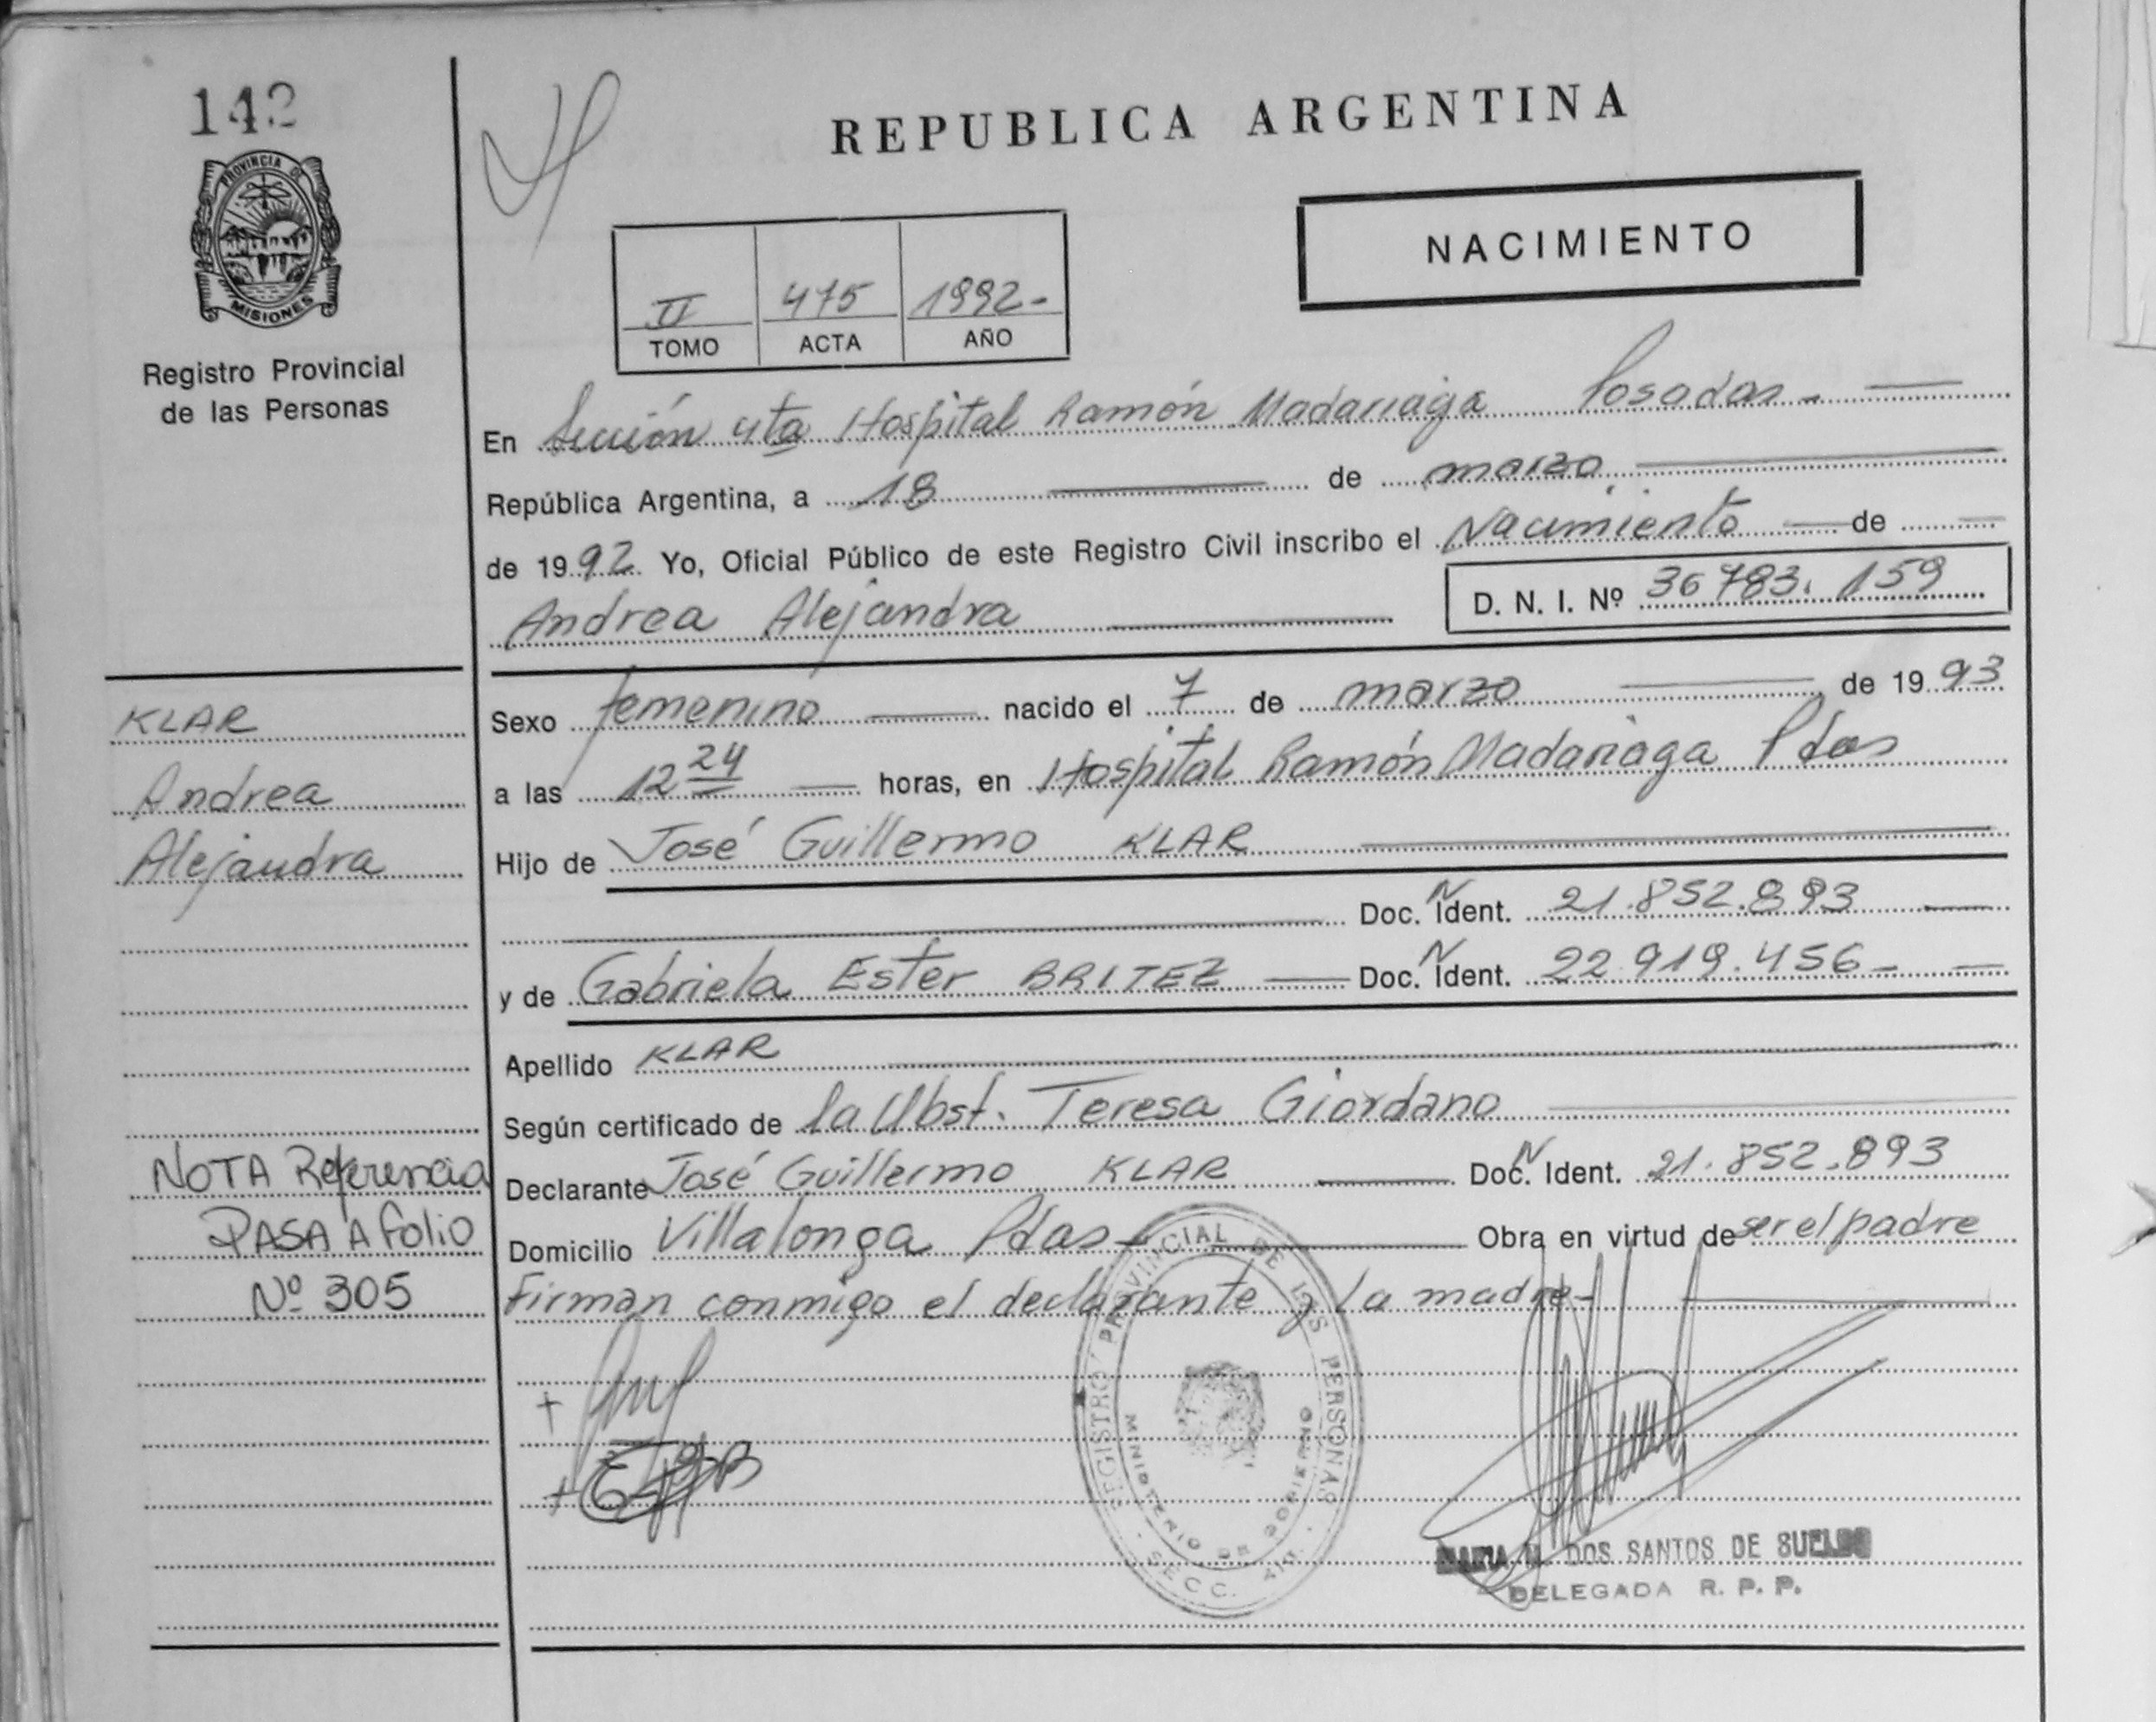 142
PROVINCIA DE
MISIONES
Registro Provincial
de las Personas
REPUBLICA ARGENTINA
NACIMIENTO
II 475 1992-
TOMO ACTA AÑO
En Sección 4ta Hospital Ramón Madariaga Posadas-
República Argentina, a 18 de marzo
de 1992 Yo, Oficial Público de este Registro Civil inscribo el Nacimiento de
Andrea Alejandra D. N. I. Nº 36783.159
Sexo femenino nacido el 7 de marzo de 1993
a las 12 24 horas, en Hospital Ramón Madariaga Pdas
Hijo de José Guillermo KLAR
Doc. N Ident. 21.852.893
y de Gabriela Ester BRITEZ Doc. N Ident. 22.919.456-
Apellido KLAR
Según certificado de la Obst. Teresa Giordano
Declarante José Guillermo KLAR Doc. N Ident. 21.852.893
Domicilio Villalonga Pdas- Obra en virtud de ser el padre
Firman conmigo el declarante y la madre-
KLAR
Andrea
Alejandra
NOTA Referencia
PASA A folio
Nº 305
REGISTRO PROVINCIAL DE LAS PERSONAS
MINISTERIO DE GOBIERNO
SECC. 4ta.
MARIA N. DOS SANTOS DE SUELDO
DELEGADA R. P. P.